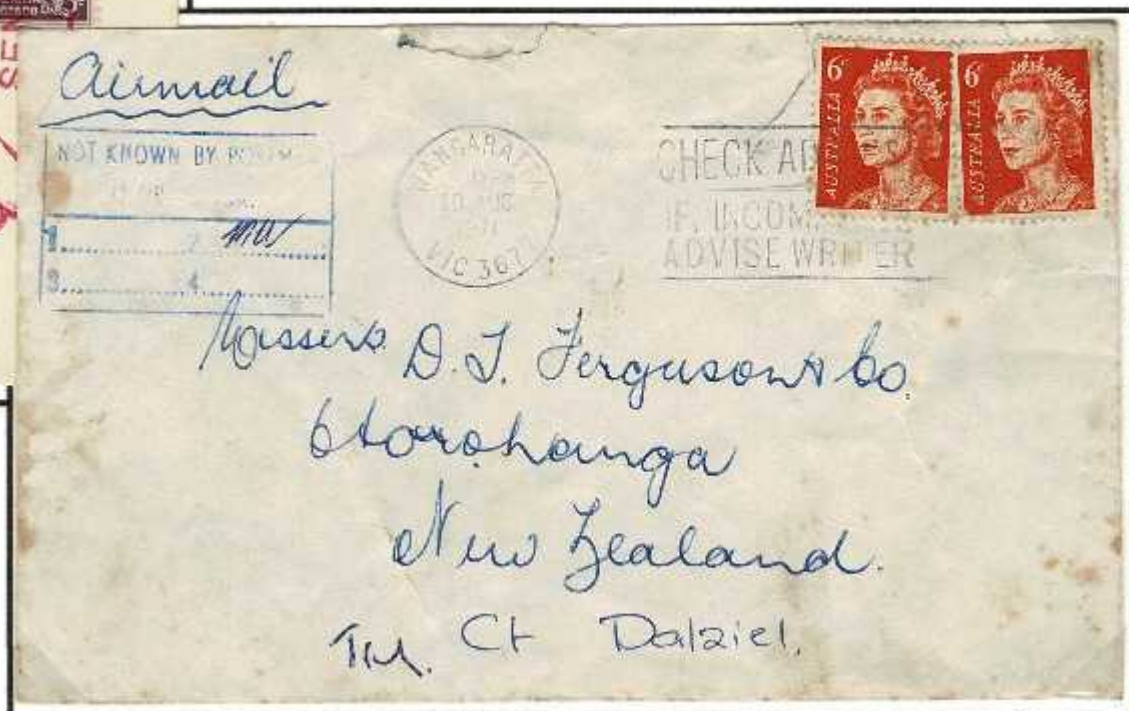 Airmail
NOT KNOWN BY
1 2
3 4
WANGARATTA
10 AUG
71
VIC 367
CHECK AD
IF INCOM
ADVISE WRITER
6c AUSTRALIA
6c AUSTRALIA
Messers D. J. Ferguson & Co.
Otorohanga
New Zealand.
Ct Dalziel.
SEN